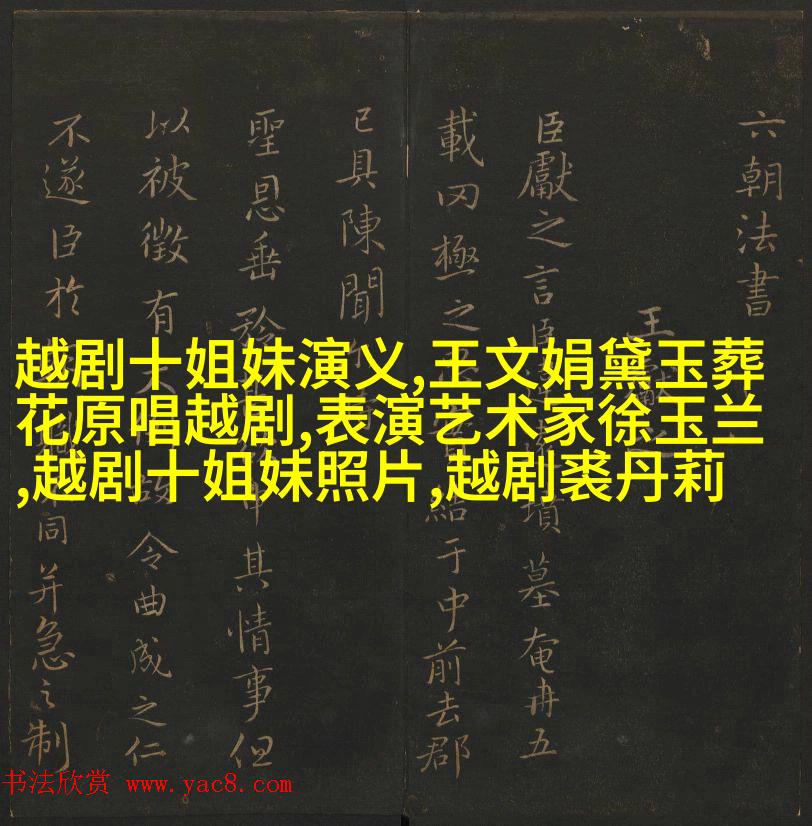 六朝法書
王獻之
臣獻之言臣墳墓奄冉五
載罔極之結于中前去郡
已具陳聞
聖恩垂矜其情事但
以被徵有令曲成之仁
不遂臣於同并急之制
越剧十姐妹演义,王文娟黛玉葬
花原唱越剧,表演艺术家徐玉兰
,越剧十姐妹照片,越剧裘丹莉
书法欣赏 www.yac8.com